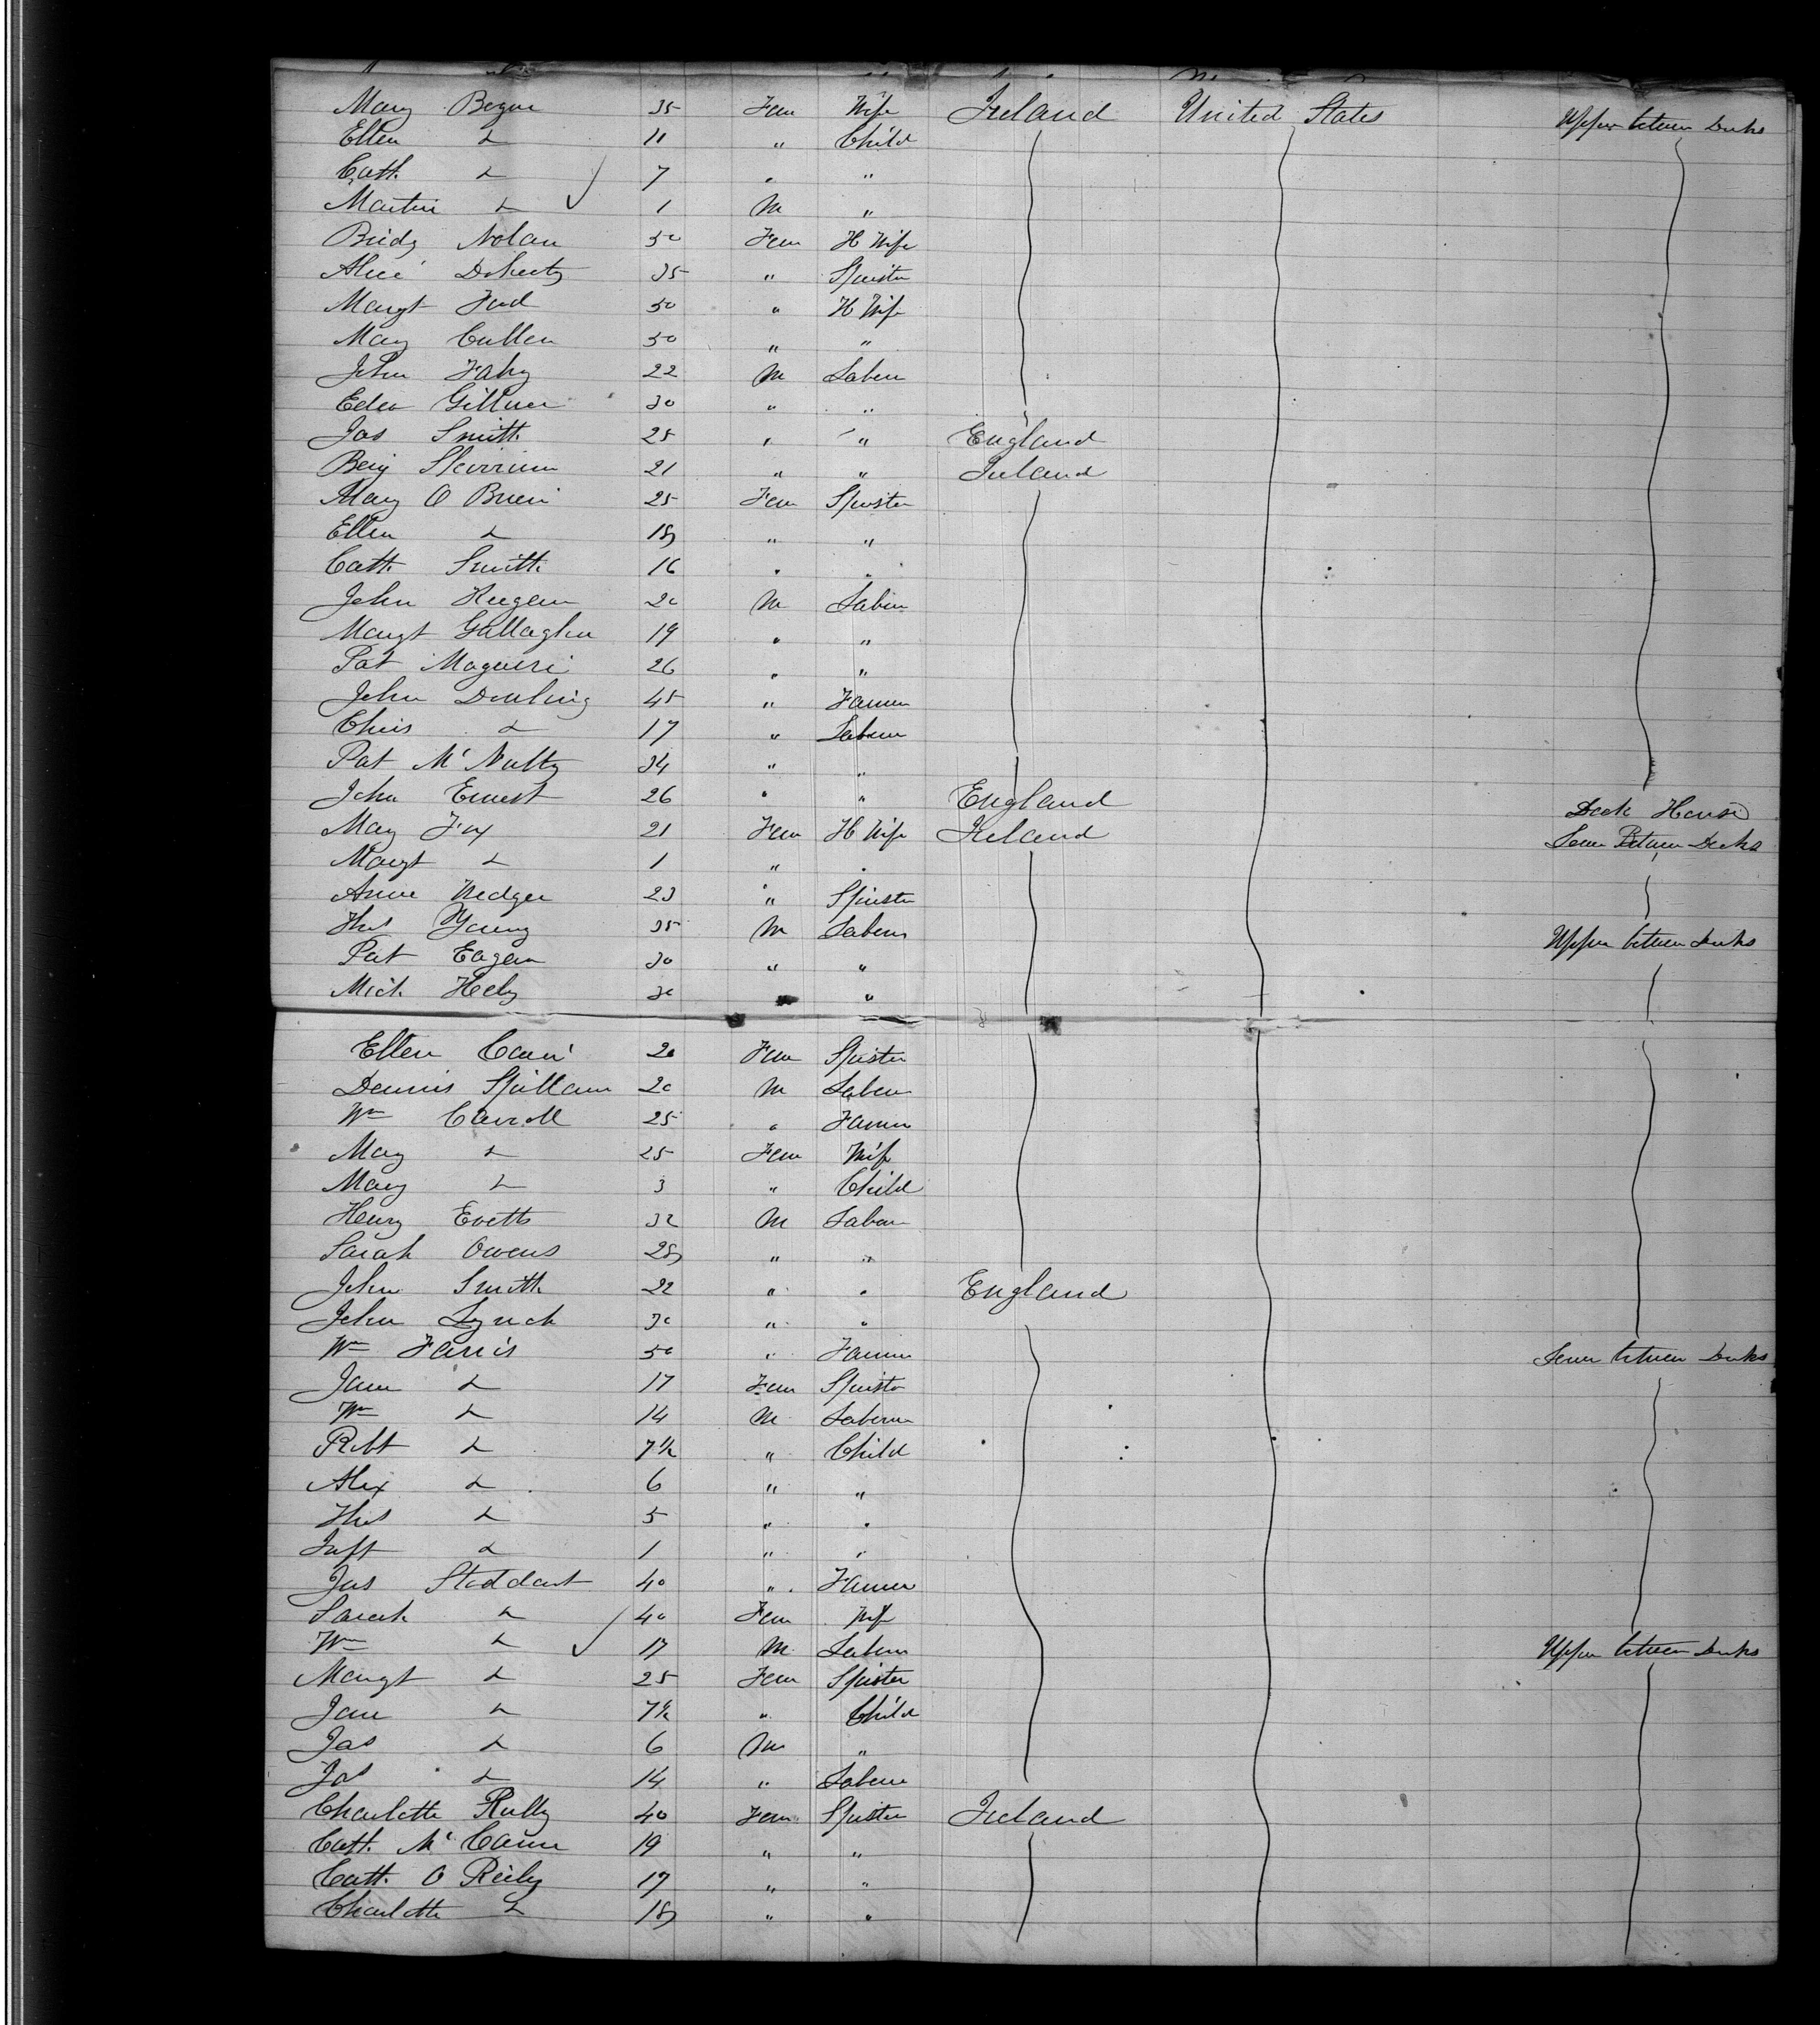 Mary 35 Fem Wife Ireland United States Upper between Decks
Ellen 11 " Child
Cath 7 " "
Martin 1 M "
Bridg Nolan 50 Fem H Wife
Alice Doherty 35 " Spinster
Margt 50 " H Wife
Mary Cullen 50 " "
John Fahy 22 M Laborer
30 " "
Jas Smith 25 " " England
21 " " Ireland
Mary O Brien 25 Fem Spinster
Ellen 18 " "
Cath Smith 16 " "
John 20 M Laborer
Margt Gallagher 19 " "
Pat Maguire 26 " "
John Dowling 45 " Farmer
Chris 17 " Laborer
Pat McNulty 34 " "
John Ernest 26 " " England Deck House
Mary Fox 21 Fem H Wife Ireland Lower Between Decks
Margt 1 " "
Anne 23 " Spinster
Thos Young 35 M Laborer Upper between Decks
Pat Eagan 30 " "
Mich Healy 30 " "
Ellen 20 Fem Spinster
Dennis Spillane 20 M Laborer
Wm Carroll 25 " Farmer
Mary 25 Fem Wife
Mary 3 " Child
Henry Evetts 32 M Labour
Sarah Owens 28 " "
John Smith 22 " " England
John Lynch 30 " "
Wm Farris 50 " Farmer Lower between Decks
Jane 17 Fem Spinster
Wm 14 M Laborer
Robt 7½ " Child
Alex 6 " "
Thos 5 " "
Inft 1 " "
Jas Stoddart 40 " Farmer
Sarah 40 Fem Wife
Wm 17 M Laborer Upper between Decks
Margt 25 Fem Spinster
Jane 7½ " Child
Jas 6 M "
Jos 14 " Laborer
Charlotte Reilly 40 Fem Spinster Ireland
Cath. McCann 19 " "
Cath. O Reily 17 " "
Charlotte 18 " "